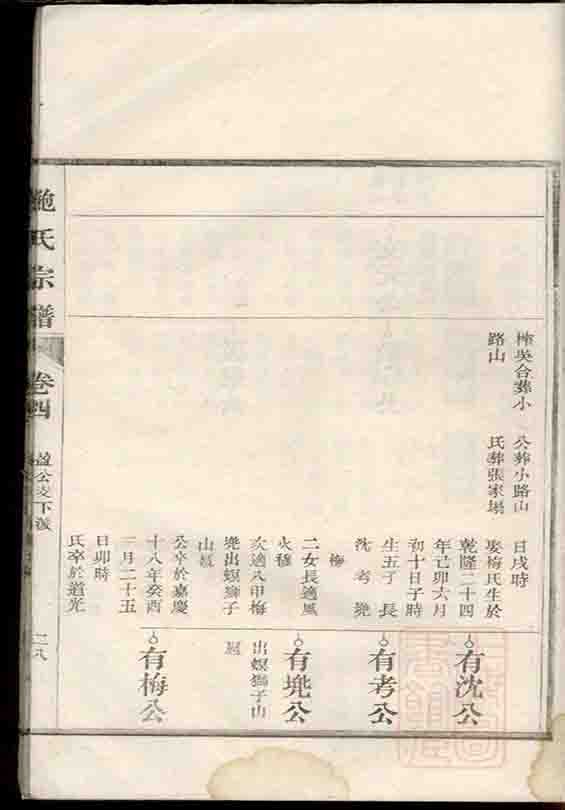 梅吳合葬小
路山
公葬小路山
氏葬張家塆
日戌時
娶梅氏生於
乾隆二十四
年己卯六月
初十日子時
生五子長
沈考
梅
二女長適風
火
次適八甲梅
出螟獅子
山
公卒於嘉慶
十八年癸酉
月二十五
日卯時
氏卒於道光
有沈公
有考公
有兠公
出螟獅子山
有梅公
鮑氏宗譜
卷四
公支下